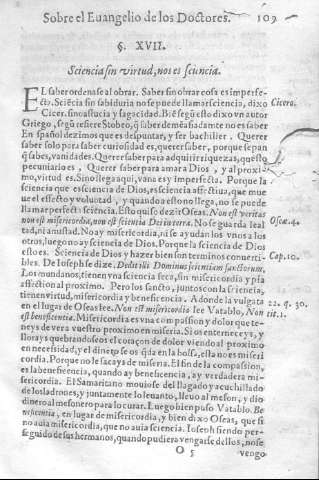 Sobre el Euangelio de los Doctores. 109
§. XVII.
Sciencia sin virtud, no es sciencia.
EL saber ordenase al obrar. Saber sin obrar cosa es imperfe-
cta. Sciēcia sin sabiduria no se puede llamar sciencia, dixo Cicero.
Cicer. sino astucia y sagacidad. Biē segū esto dixo vn autor
Griego, segū refiere Stobeo, q̄ saber demasiadamente no es saber
En español dezimos que es despuntar, y ser bachiller. Querer
saber solo para saber curiosidad es, querer saber, porque sepan
q̄ sabes, vanidades. Querer saber para adquirir riquezas, questo
pecuniario es, Querer saber para amar a Dios, y al proxi-
mo, virtud es. Si no llega aqui, vana es y imperfecta. Porque la
sciencia que es sciencia de Dios, es sciencia affectiua, que mue
ue el effecto y voluntad, y quando a esto no llega, no se puede
llamar perfecta sciencia. Esto quiso dezir Oseas. Non est veritas
non est misericordia, non est scientia Dei in terra. No se guarda leal Oseæ. 4.
tad, ni amistad. No ay misericordia, ni se ayudan los vnos a los
otros, luego no ay sciencia de Dios. Porque la sciencia de Dios
esto es. Sciencia de Dios y hazer bien son terminos conuerti- Cap. 10.
bles. De Ioseph se dize. Dedit illi Dominus scientiam sanctorum,
Los mundanos, tienen vna sciencia seca, sin misericordia y pia
affection al proximo. Pero los sanctos, juntos con la sciencia,
tienen virtud, misericordia y beneficencia. A donde la vulgata 22. q. 30.
en el lugar de Oseas lee. Non est misericordia lee Vatablo, Non tit. 1.
est beneficentia. Misericordia es vna compassion y dolor que te-
neys de ver a vuestro proximo en miseria. Si os enterneceys, y
lloras y quebrandoseos el coraçon de dolor viendo al proximo
en necesidad, y el dinero se os q̄da en la bolsa, essa no es miseri
cordia. Porque no le sacays de miseria. El fin de la compassion,
es la beneficencia, quando ay beneficencia, ay verdadera mi-
sericordia. El Samaritano mouiose del llagado y acuchillado
de los ladrones, y juntamente lo leuanto, lleuo al meson, y dio
dinero al mesonero para lo curar. Luego bien puso Vatablo. Be
neficentia, en lugar de misericordia, y bien dixo Oseas, que si
no auia misericordia, que no auia sciencia. Ioseph siendo per-
seguido de sus hermanos, quando pudiera vengarse dellos, no se
O 5 vengo